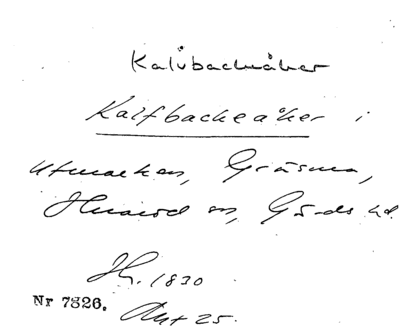 Kalvbackeåker
Kalfbackeåker i
utmarken, Gråsma,
Hvarod sn, Gärds hd.
H. 1830
Nr 7326. Akt 25.